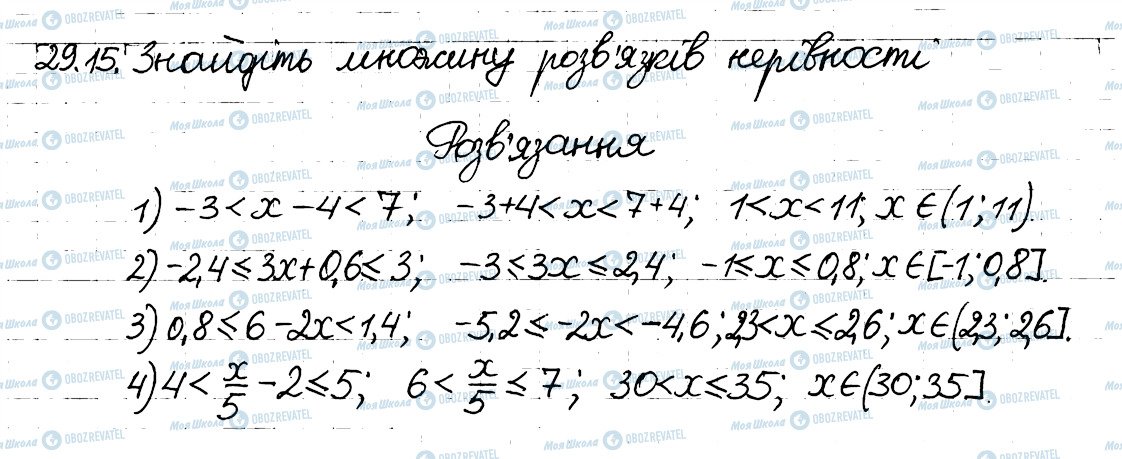 29.15. Знайдіть множину розв'язків нерівності
Розв'язання
1) -3 < x - 4 < 7; -3+4 < x < 7+4; 1 < x < 11; x ∈ (1; 11).
2) -2,4 ≤ 3x + 0,6 ≤ 3; -3 ≤ 3x ≤ 2,4; -1 ≤ x ≤ 0,8; x ∈ [-1; 0,8].
3) 0,8 ≤ 6 - 2x < 1,4; -5,2 ≤ -2x < -4,6; 2,3 < x ≤ 2,6; x ∈ (2,3; 2,6].
4) 4 < x/5 - 2 ≤ 5; 6 < x/5 ≤ 7; 30 < x ≤ 35; x ∈ (30; 35].